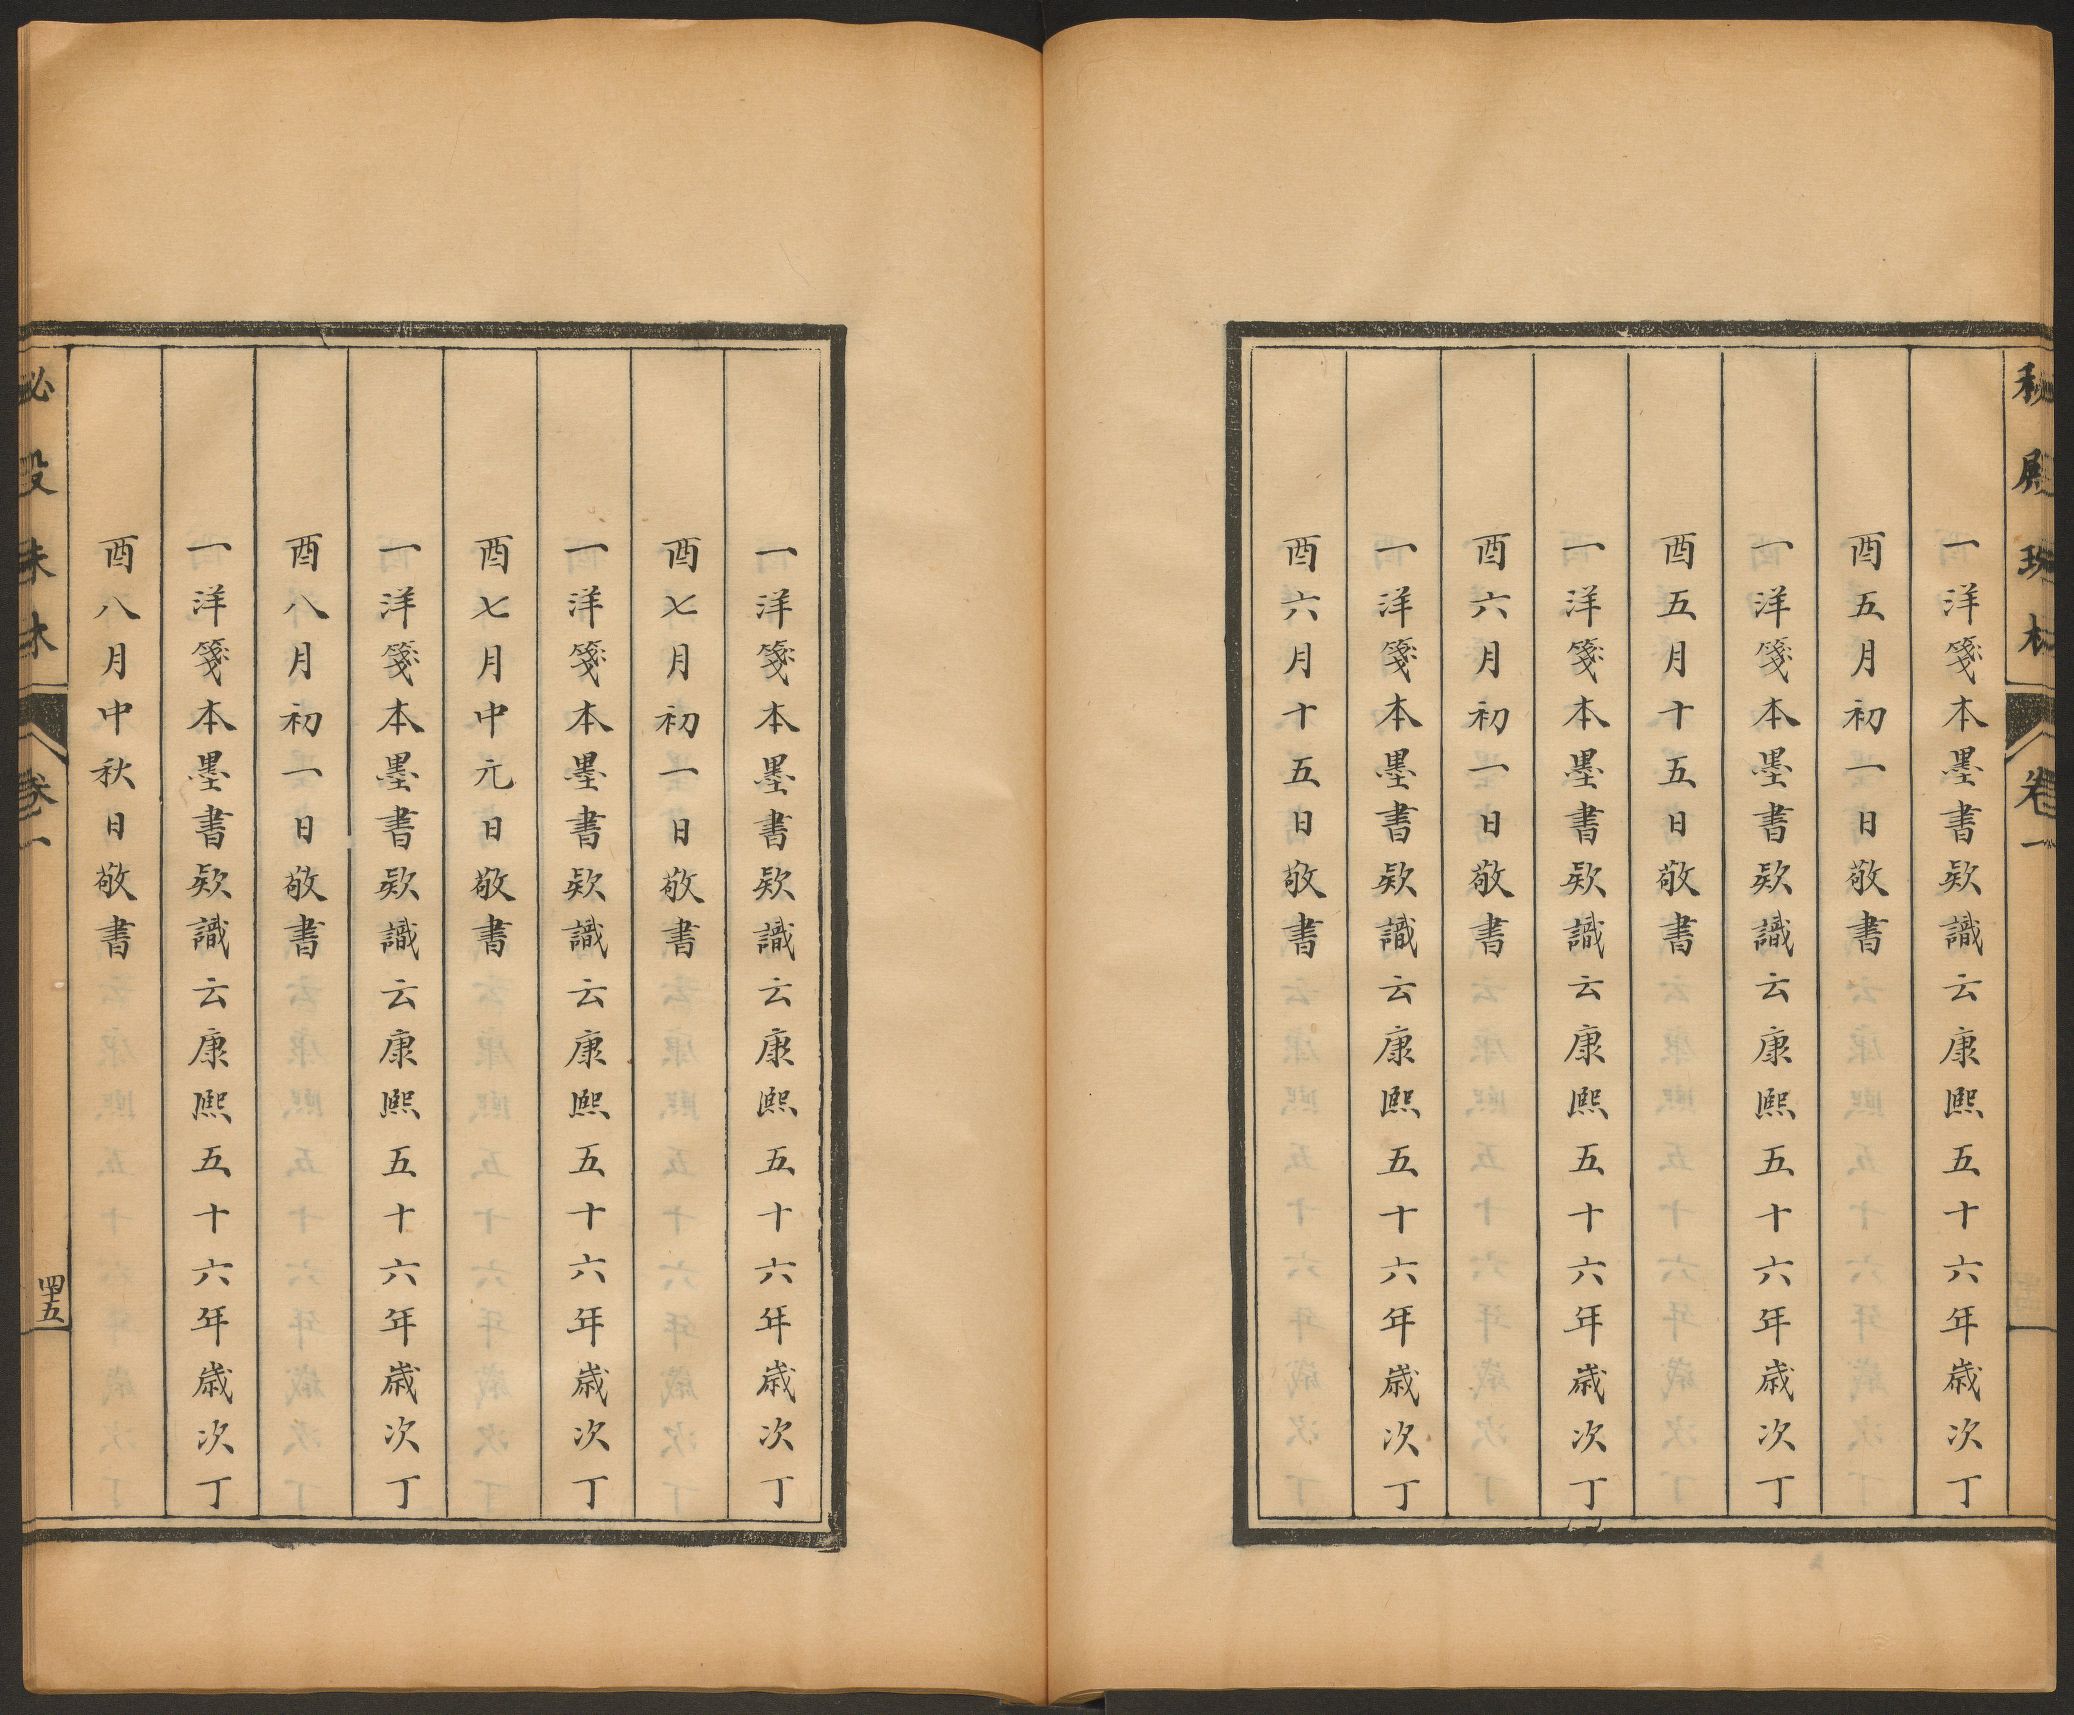 秘殿珠林
卷一
一洋箋本墨書欵識云康熙五十六年歲次丁
酉五月初一日敬書
一洋箋本墨書欵識云康熙五十六年歲次丁
酉五月十五日敬書
一洋箋本墨書欵識云康熙五十六年歲次丁
酉六月初一日敬書
一洋箋本墨書欵識云康熙五十六年歲次丁
酉六月十五日敬書
一洋箋本墨書欵識云康熙五十六年歲次丁
酉七月初一日敬書
一洋箋本墨書欵識云康熙五十六年歲次丁
酉七月中元日敬書
一洋箋本墨書欵識云康熙五十六年歲次丁
酉八月初一日敬書
一洋箋本墨書欵識云康熙五十六年歲次丁
酉八月中秋日敬書
秘殿珠林
卷一
四十五